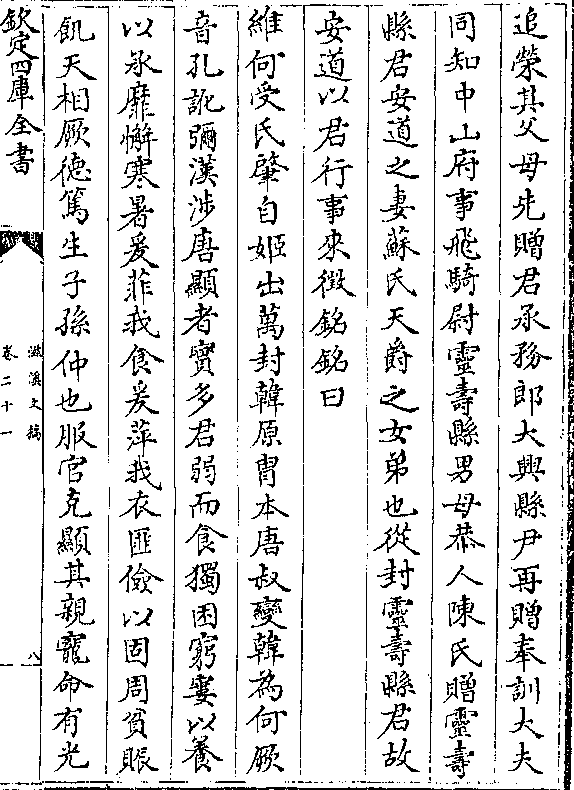 追榮其父母先贈君承務郎大興縣尹再贈奉訓大夫
同知中山府事飛騎尉靈壽縣男母恭人陳氏贈靈壽
縣君安道之妻蘇氏天爵之女弟也從封靈壽縣君故
安道以君行事來徵銘銘曰
維何受氏肇自姬出萬封韓原胄本唐叔變韓為何厥
音孔訛彌漢涉唐顯者實多君弱而食獨困窮寠以養
以承靡懈寒暑爰菲我食爰萍我衣匪儉以固周貧賬
飢天相厥德篤生子孫仲也服官克顯其親寵命有光
欽定四庫全書
滋溪文稿
卷二十一
八